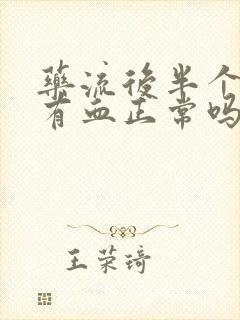 藥流後半个
有血正常吗
王荣琦